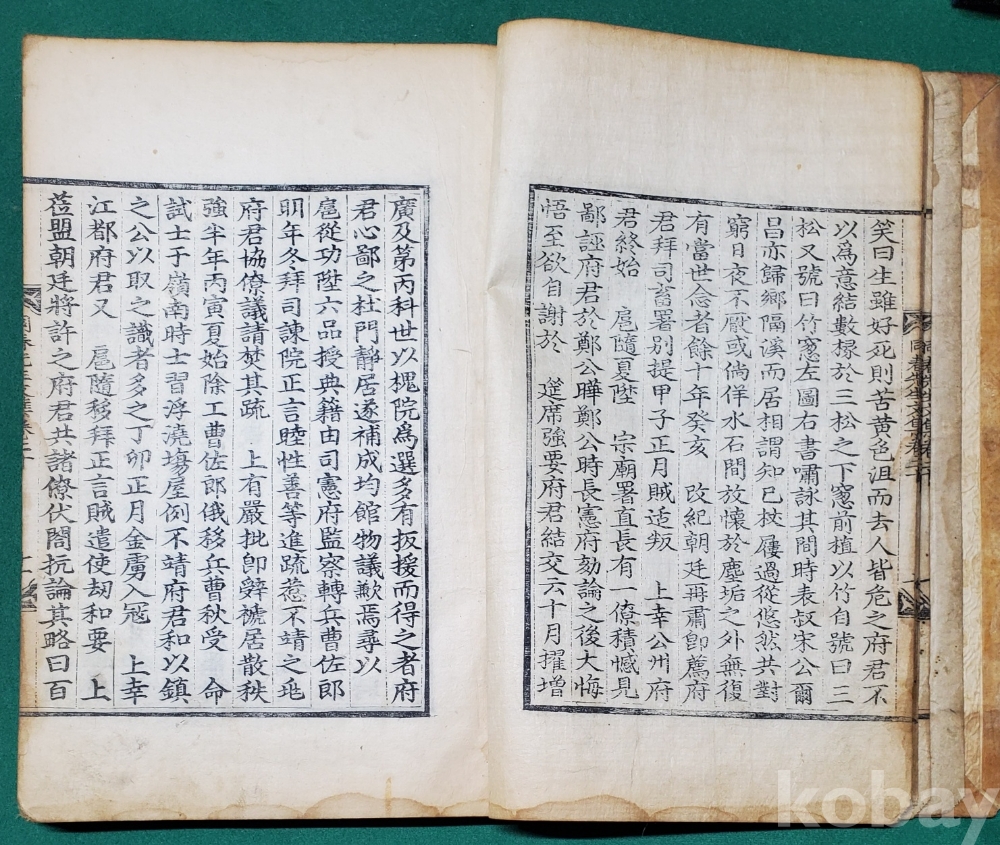 笑曰生雖好死則苦黄色沮而去人皆危之府君不
以爲意結數椽於三松之下窓前植以竹自號曰三
松又號曰竹窓左圖右書嘯詠其間時表叔宋公爾
昌亦歸鄉隔溪而居相謂知已杖屨過從悠然共對
窮日夜不厭或倘佯水石間放懷於塵垢之外無復
有當世念者餘十年癸亥 改紀朝廷再肅卽薦府
君拜司畜署別提甲子正月賊适叛 上幸公州府
君終始 扈隨夏陞 宗廟署直長有一僚積憾見
鄙誣府君於鄭公曄鄭公時長憲府劾論之後大悔
悟至欲自謝於 筵席強要府君結交云十月擢增
廣及第丙科世以槐院爲選多有扳援而得之者府
君心鄙之杜門靜居遂補成均館物議歉焉尋以
扈從功陞六品授典籍由司憲府監察轉兵曹佐郎
明年冬拜司諫院正言睦性善等進疏惹不靖之地
府君協僚議請焚其疏 上有嚴批卽辭褫居散秩
強半年丙寅夏始除工曹佐郎俄移兵曹秋受 命
試士于嶺南時士習浮澆塲屋例不靖府君和以鎮
之公以取之識者多之丁卯正月金虜入冦 上幸
江都府君又 扈隨移拜正言賊遣使刼和要 上
蒞盟朝廷將許之府君共諸僚伏閤抗論其略曰百
kobay